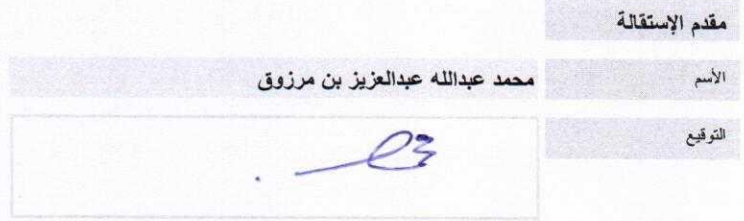 مقدم الإستقالة
الأسم محمد عبدالله عبدالعزيز بن مرزوق
التوقيع